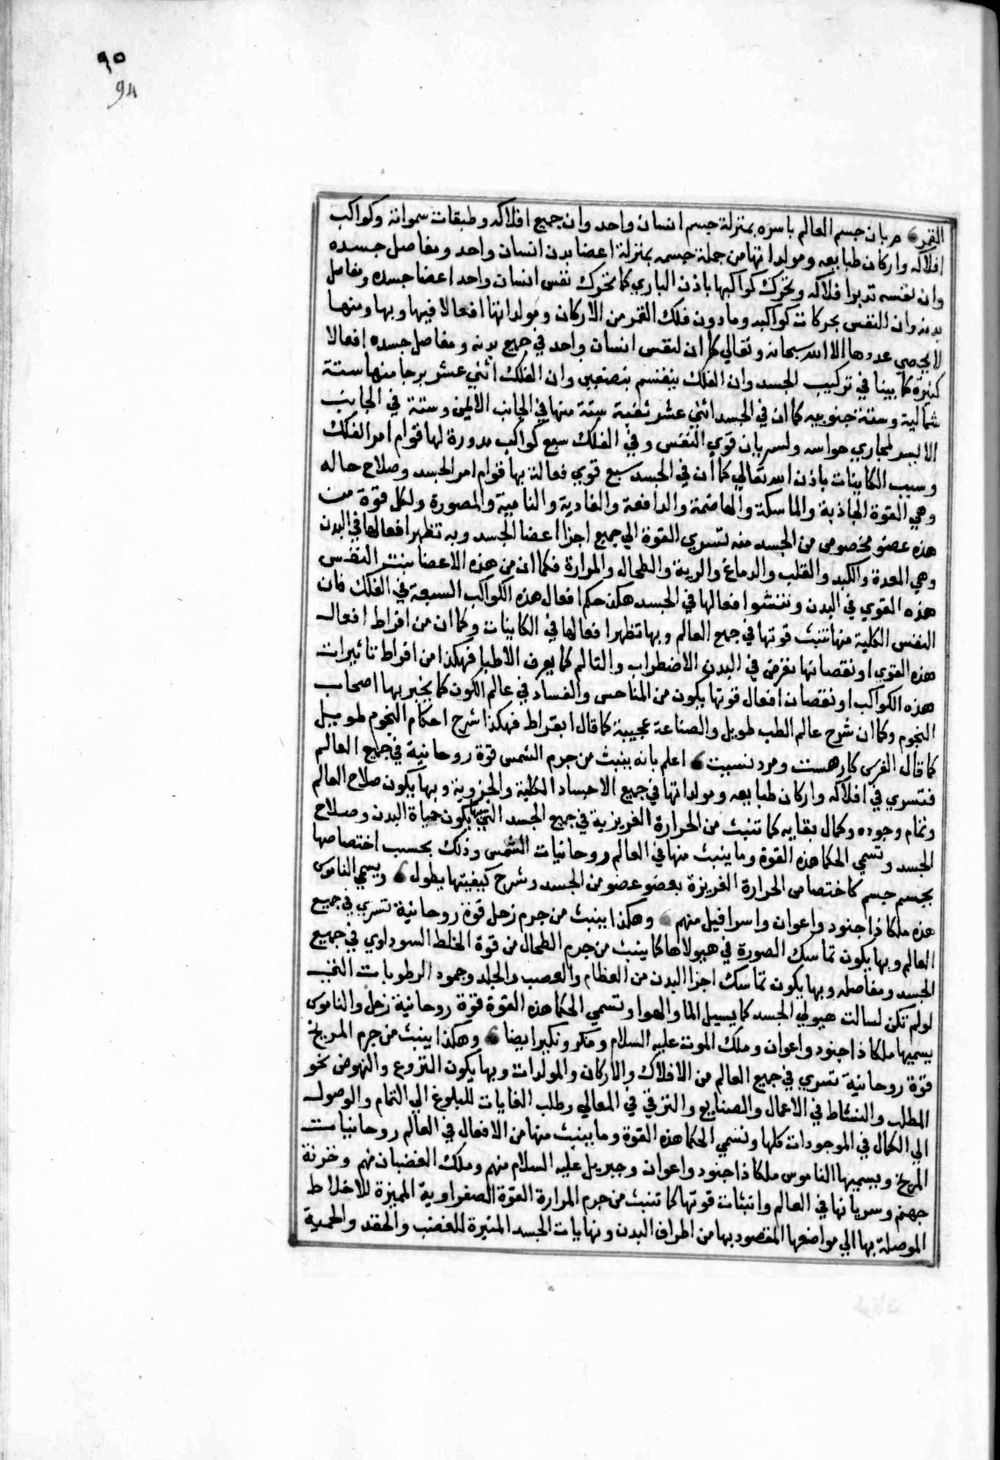 ٩٥
94
القمر ه مر بان جسم العالم باسره بمنزلة جسم انسان واحد وان جميع افلاكه وطبقات سمواته وكواكب
افلاكه واركان طبايعه ومولداتها من جملة جسمه بمنزلة اعضا بدن انسان واحد ومفاصل جسده
وان نفسه تدير افلاكه وتحرك كواكبها باذن الباري كما تحرك نفس انسان واحد اعضا جسده ومفاصل
بدنه وان للنفس بحركات كواكبه وما دون فلك القمر من الاركان ومولداتها افعالا فيها وبها ومنها
لا يحصي عددها الا الله سبحانه وتعالي كما ان لنفس انسان واحد في جميع بدنه ومفاصل جسده افعالا
كثيرة كما بينا في تركيب الجسد وان الفلك ينقسم بنصفين وان الفلك اثني عشر برجا منها ستة
شمالية وستة جنوبيه كما ان في الجسد اثني عشر ثقبة ستة منها في الجانب الايمن وستة في الجانب
الايسر لمجاري حواسه ولسريان قوي النفس وفي الفلك سبع كواكب مدورة لها قوام امر الفلك
وسبب الكاينات باذن الله تعالي كما ان في الجسد سبع قوي فعالة بها قوام امر الجسد وصلاح حاله
وهي القوة الجاذبة والماسكة والهاضمة والدافعة والغاذية والنامية والمصورة ولكل قوة من
هذه عضو مخصوص من الجسد منه تسري القوة الي جميع اجزا اعضا الجسد وبه تظهر افعالها في البدن
وهي المعدة والكبد والقلب والدماغ والرية والطحال والمرارة فكما ان من هذه الاعضا ينتشر النفس
هذه القوي في البدن وتنشوا افعالها في الجسد هكذا حكم افعال هذه الكواكب السبعة في الفلك فان
النفس الكلية منها تنبث قوتها في جميع العالم وبها تظهر افعالها في الكاينات وكما ان من افراط افعال
هذه القوي او نقصانها يعرض في البدن الاضطراب والتالم كما يعرف الاطبا فهكذا من افراط تاثيرات
هذه الكواكب او نقصان افعال قوتها يكون من المناحس والفساد في عالم الكون كما يخبر بها اصحاب
النجوم وكما ان شرح عالم الطب طويل والصناعة عجيبة كما قال ابقراط فهكذا شرح احكام النجوم طويل
كما قال الفرس كار هست ومرد نسيت ه اعلم بانه ينبث من جرم الشمس قوة روحانية في جميع العالم
فتسري في افلاكه واركان طبايعه ومولداتها في جميع الاجساد الكلية والجزوية وبها يكون صلاح العالم
وتمام وجوده وكمال بقايه كما تنبث من الحرارة الغريزية في جميع الجسد التي بها يكون حياة البدن وصلاح
الجسد وتسمي الحكما هذه القوة وما ينبث منها في العالم روحانيات الشمس وذلك بحسب اختصاصها
بجسم جسم كاختصاص الحرارة الغريزة بعضو عضو من الجسد وشرح كيفيتها يطول ه ويسمي الناموس
هذه ملكا ذا جنود واعوان واسرافيل منهم ه وهكذا ينبث من جرم زحل قوة روحانية تسري في جميع
العالم وبها يكون تماسك الصورة في هيولاها كما ينبث من جرم الطحال من قوة الخلط السوداوي في جميع
الجسد ومفاصله وبها يكون تماسك اجزا البدن من العظام والعصب والجلد وجمود الرطوبات التي
لولم تكن لسالت هيولي الجسد كما يسيل الما والهوا وتسمي الحكما هذه القوة قوة روحانية زحل والناموس
يسميها ملكا ذا جنود واعوان وملك الموت عليه السلام ومنكر ونكير ايضا ه وهكذا ينبث من جرم المريخ
قوة روحانية تسري في جميع العالم من الافلاك والاركان والمولدات وبها يكون النزوع والنهوض نحو
المطلب والنشاط في الاعمال والصنايع والترقي في المعالي وطلب الغايات للبلوغ الي التمام والوصول
الي الكمال في الموجودات كلها وتسمي الحكما هذه القوة وما ينبث منها من الافعال في العالم روحانيات
المريخ ويسميها الناموس ملكا ذا جنود واعوان وجبريل عليه السلام منهم وملك الغضبان منهم وخزنة
جهنم وسريانها في العالم وانبثاث قوتها كما تنبث من جرم المرارة القوة الصفراوية المميزة للاخلاط
الموصلة بها الي مواضعها المقصود بها من اطراف البدن ونهايات الجسد المثيرة للغضب والحقد والحمية